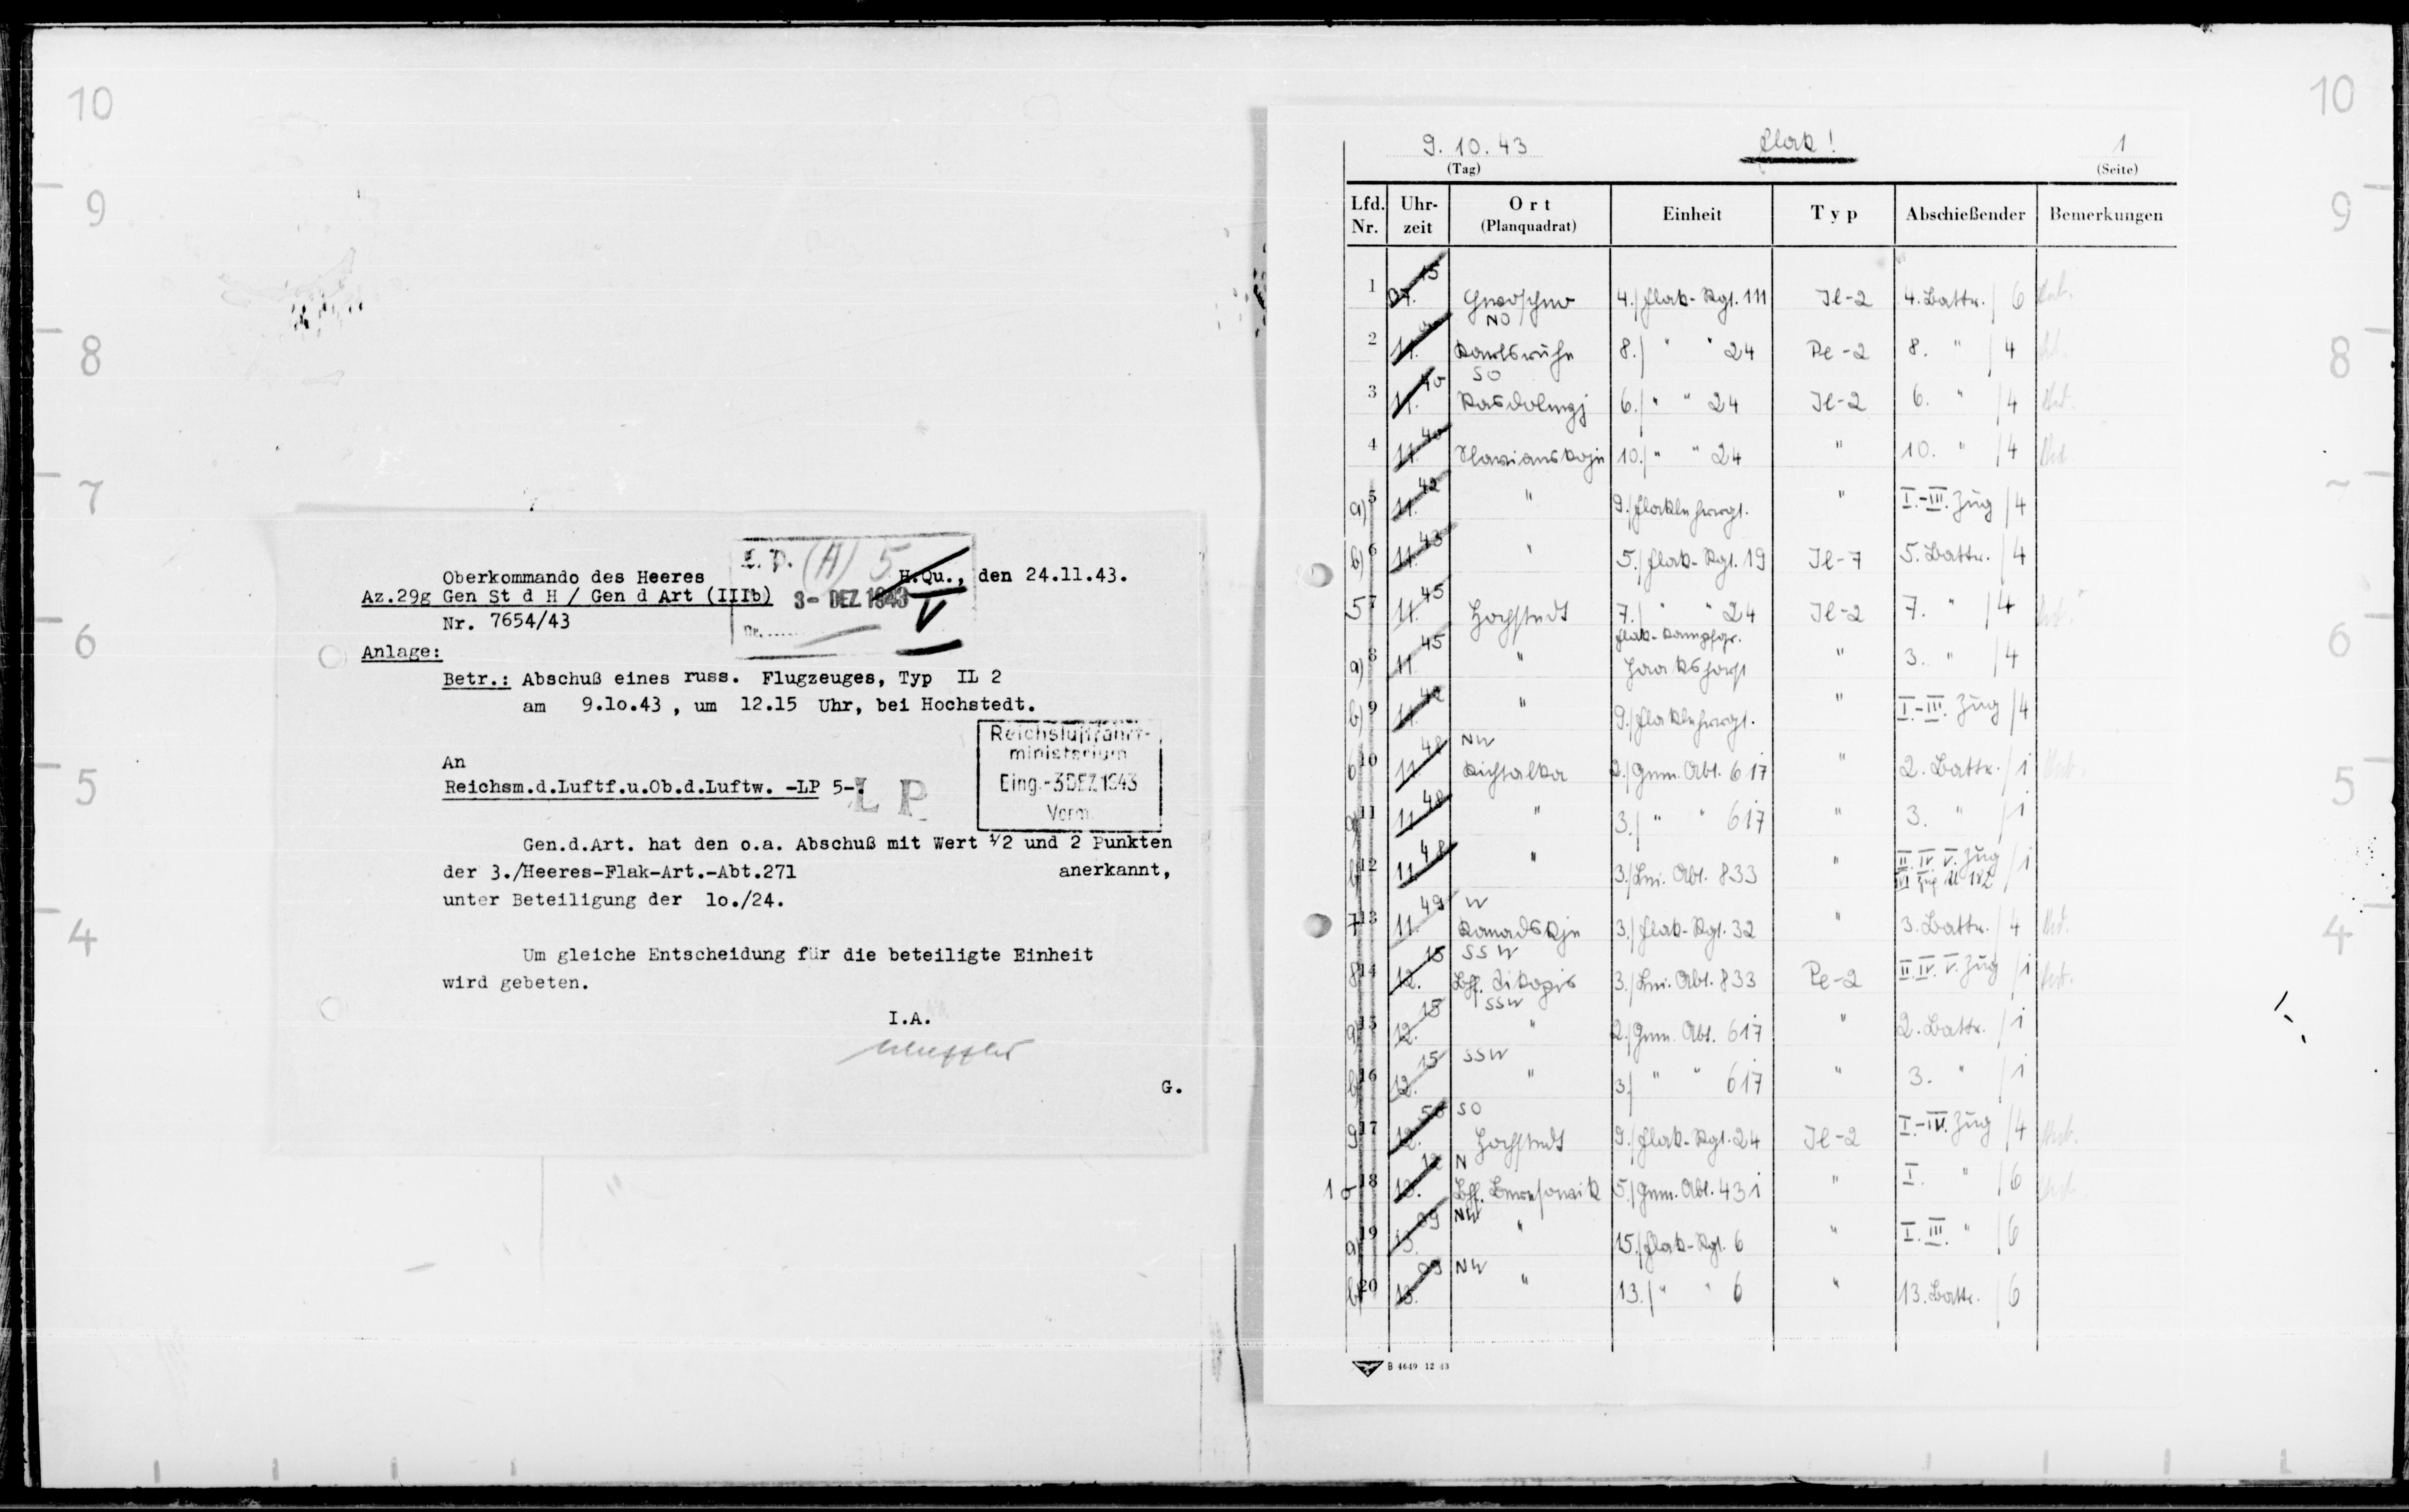 10
9
8
7
6
5
4
L. P. (H) 5
Oberkommando des Heeres H.Qu., den 24.11.43.
Az.29g Gen St d H / Gen d Art (IIIb) 3- DEZ 1943
Nr. 7654/43 Nr. .....
Anlage:
Betr.: Abschuß eines russ. Flugzeuges, Typ IL 2
am 9.1o.43 , um 12.15 Uhr, bei Hochstedt.
Reichsluftfahrt-
ministerium
Eing.-3.DEZ.1943
Vorm.
An
Reichsm.d.Luftf.u.Ob.d.Luftw. -LP 5-.
L P
Gen.d.Art. hat den o.a. Abschuß mit Wert 1/2 und 2 Punkten
der 3./Heeres-Flak-Art.-Abt.271 anerkannt,
unter Beteiligung der 1o./24.
Um gleiche Entscheidung für die beteiligte Einheit
wird gebeten.
I.A.
G.
9. 10. 43 Flak! 1
(Tag) (Seite)
Lfd. Nr. Uhr-zeit Ort (Planquadrat) Einheit Typ Abschießender Bemerkungen
1 15 4./Flak-Rgt. 111 Il-2 4. Battr. / 6
NO
2 11. Karlsruhe 8./ " " 24 Pe-2 8. " / 4
SO
3 11. 40 6./ " " 24 Il-2 6. " / 4
4 11. 40 10./ " " 24 " 10. " / 4
a) 5 11. 42 " 9./Flaklehrrgt. " I.-III. Zug / 4
b) 6 11. 43 " 5./Flak-Rgt. 19 Il-7 5. Battr. / 4
5 7 11. 45 Hochstedt 7./ " " 24 Il-2 7. " / 4
Flak-Kampfgr.
a) 8 11 45 " " 3. " / 4
b) 9 11. 42 " 9./Flaklehrrgt. " I.-III. Zug / 4
NW
6 10 11. 48 2./Gem. Abt. 617 " 2. Battr. / 1
a) 11 11 48 " 3./ " " 617 " 3. " / 1
b) 12 11 48 " 3./Lei. Abt. 833 " II. IV. V. Zug / 1
W
7 13 11. 49 3./Flak-Rgt. 32 " 3. Battr. / 4
SSW
8 14 12. 15 3./Lei. Abt. 833 Pe-2 II. IV. V. Zug / 1
SSW
a) 15 12. 15 " 2./Gem. Abt. 617 " 2. Battr. / 1
SSW
b) 16 12. 15 " 3./ " " 617 " 3. " / 1
SO
9 17 12. 50 Hochstedt 9./Flak-Rgt. 24 Il-2 I.-IV. Zug / 4
N
10 18 13. 12 5./Gem. Abt. 431 " I. " / 6
NW
a) 19 13. 09 " 15./Flak-Rgt. 6 " I. III. " / 6
NW
b) 20 13. 09 " 13./ " " 6 " 13. Battr. / 6
B 4649 12 43
10
9
8
7
6
5
4